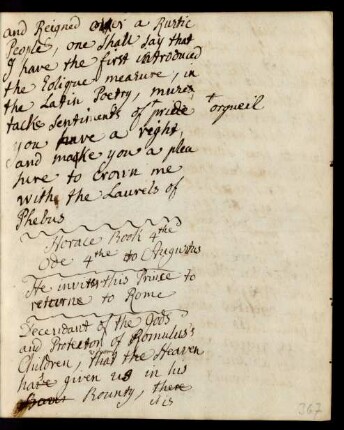 and Reigned over a Rustic
People, one shall say that
I have the first introduced
the Eolique measure, in
the Latin Poetry, muse,
take sentiments of †pride †orgueil
you have a right,
and make you a plea
sure to crown me
with the Laurels of
Phebus
Horace Book 4the
Ode 4the to Augustus
He invites this Prince to
returne to Rome
Decendant of the Gods
and Protector of Romulus's
Children, that the Heaven
have given us in his
Bounty, there
it is
367